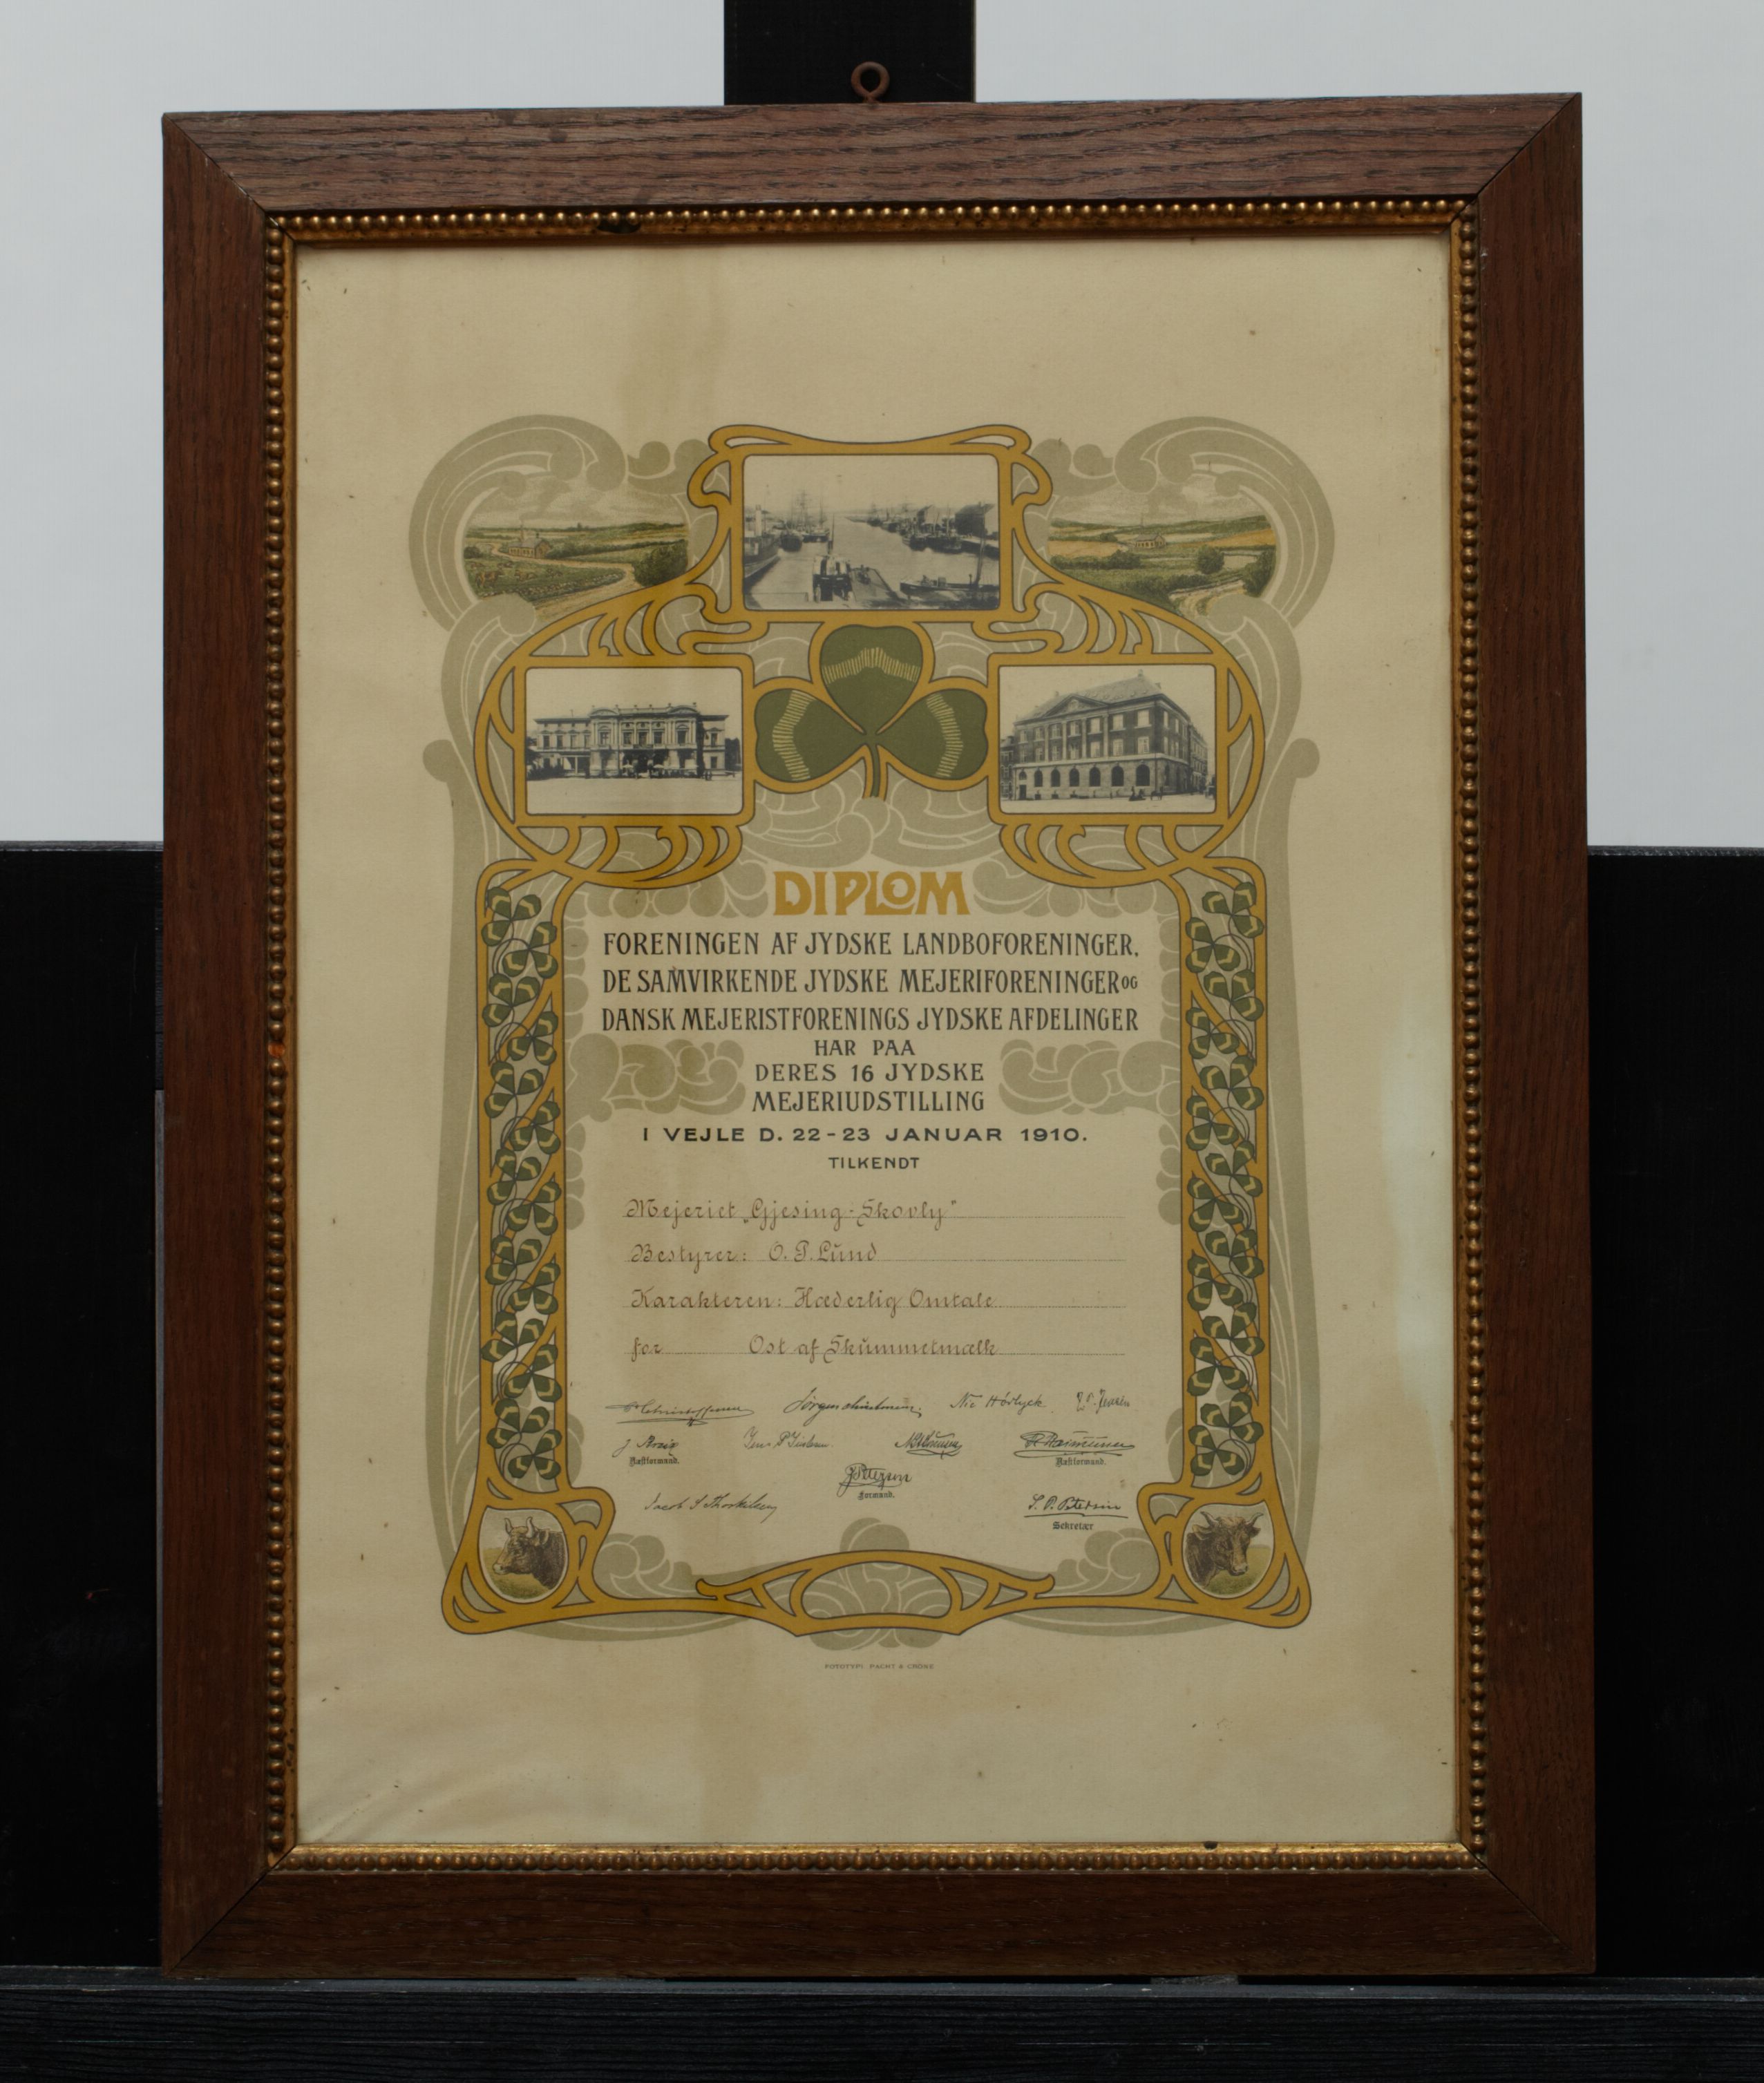 DIPLOM
FORENINGEN AF JYDSKE LANDBOFORENINGER,
DE SAMVIRKENDE JYDSKE MEJERIFORENINGER OG
DANSK MEJERISTFORENINGS JYDSKE AFDELINGER
HAR PAA
DERES 16 JYDSKE
MEJERIUDSTILLING
I VEJLE D. 22-23 JANUAR 1910.
TILKENDT
Mejeriet „Gjesing-Skovly"
Bestyrer: O. P. Lund
Karakteren: Hæderlig Omtale
for Ost af Skummetmælk
P Christoffersen Jørgen Christensen. Nic Høvlyck. J. P. Jensen
Rasmussen
Næstformand. Næstformand.
J Petersen
Formand.
Jacob S Thorkilsen S. P. Petersen
Sekretær
FOTOTYPI PACHT & CRONE